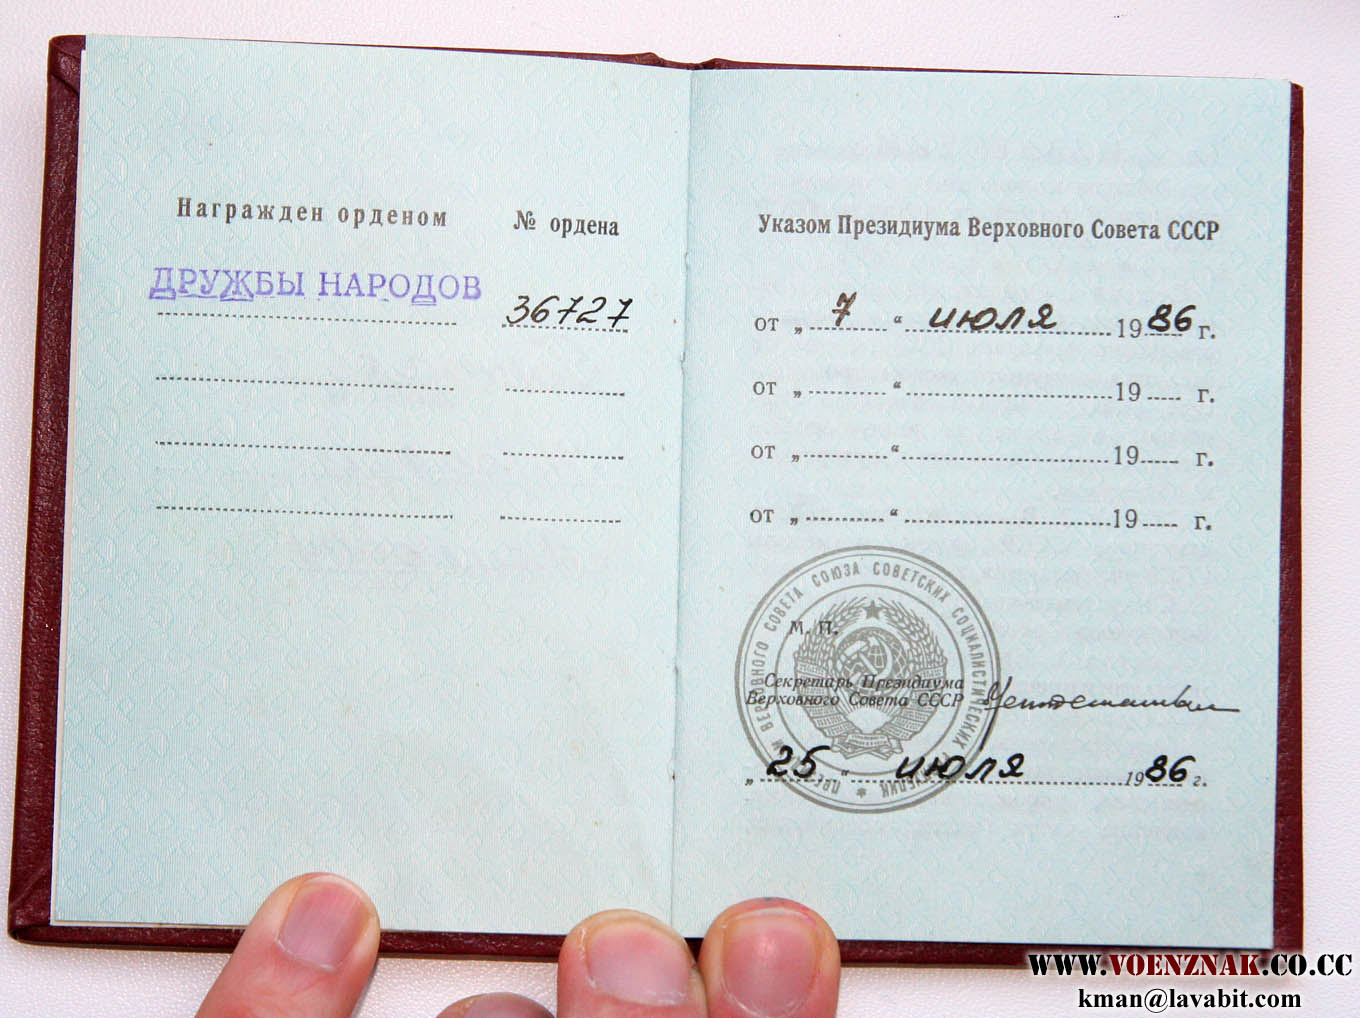 Награжден орденом
№ ордена
ДРУЖБЫ НАРОДОВ
36727
Указом Президиума Верховного Совета СССР
от „ 7 “ июля 1986 г.
от „ “ 19 г.
от „ “ 19 г.
от „ “ 19 г.
ПРЕЗИДИУМ ВЕРХОВНОГО СОВЕТА СОЮЗА СОВЕТСКИХ СОЦИАЛИСТИЧЕСКИХ РЕСПУБЛИК *
М. П.
Секретарь Президиума
Верховного Совета СССР
„ 25 “ июля 1986 г.
WWW.VOENZNAK.CO.CC
kman@lavabit.com